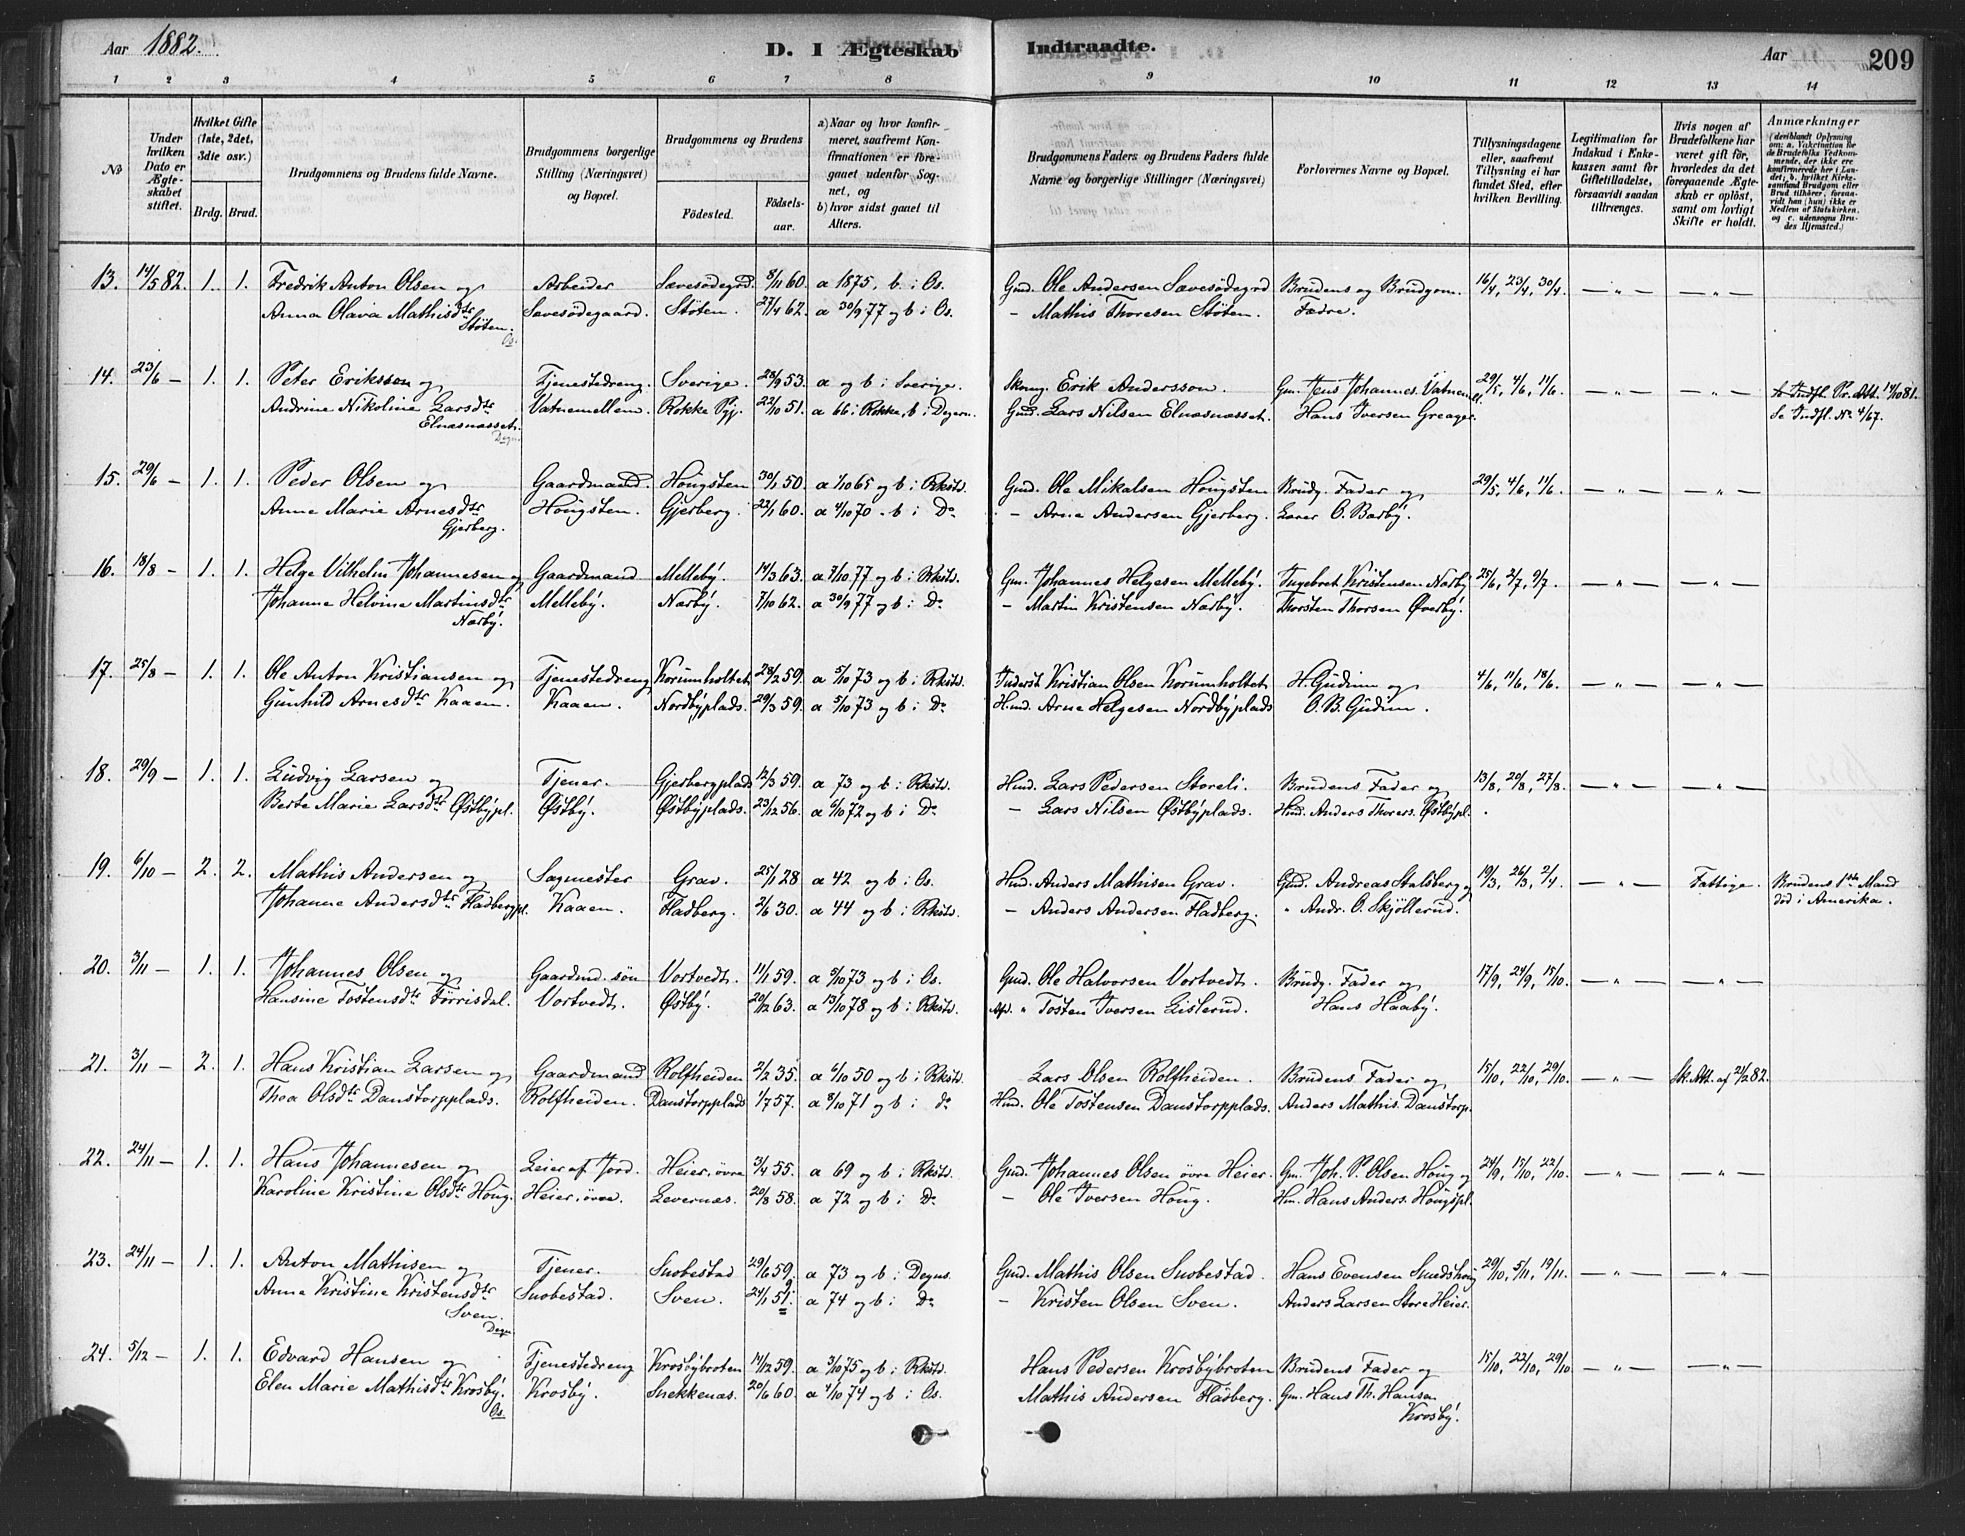 Aar 1882.
D. I Ægteskab Indtraadte.
Aar
209
1 2 3 4 5 6 7 8 9 10 11 12 13 14
No
Under hvilken Dato er Ægteskabet stiftet.
Hvilket Gifte (1ste, 2det, 3die osv.)
Brdg. Brud.
Brudgommens og Brudens fulde Navne.
Brudgommens borgerlige Stilling (Næringsvei) og Bopæl.
Brudgommens og Brudens
Fødested.
Fødselsaar.
a) Naar og hvor konfirmeret, saafremt Konfirmationen er foregaaet udenfor Sognet, og
b) hvor sidst gaaet til Alters.
Brudgommens Faders og Brudens Faders fulde Navne og borgerlige Stillinger (Næringsvei)
Forlovernes Navne og Bopæl.
Tillysningsdagene eller, saafremt Tillysning ei har fundet Sted, efter hvilken Bevilling.
Legitimation for Indskud i Enkekassen samt for Giftetilladelse, forsaavidt saadan tiltrænges.
Hvis nogen af Brudefolkene har været gift før, hvorledes da det foregaaende Ægteskab er opløst, samt om lovligt Skifte er holdt.
Anmærkninger
(deriblandt Oplysning om: a. Vakcination for de Brudefolks Vedkommende, der ikke ere konfirmerede her i Landet; b. hvilket Kirkesamfund Brudgom eller Brud tilhører, forsaavidt han (hun) ikke er Medlem af Statskirken, og c. udensogns Brudes Hjemsted.)
13. 14/5 82. 1. 1. Fredrik Anton Olsen og Arbeider Sævesødegrd. 8/11 60. a 1875, b. i Os. Gmd. Ole Andersen Sævesødegrd Brudens og Brudgom. 16/4, 23/4, 30/4. — „ — — „ —
Anna Olava Mathisdtr Støten. Os. Sævesødegaard. Støten. 27/4 62. a 30/9 77 og b i Os. – Mathis Thoresen Støten. Fædre.
14. 23/6 — 1. 1. Peter Eriksson og Tjenestedreng. Sverige. 28/9 53. a og b i Sverige. Erik Andersson. Gm. Jens Johannes. Vatnemell. 29/5, 4/6, 11/6. — „ — — „ — Pr. Att. 14/10 81.
Andrine Nikoline Larsdtr Elnæsnæsset. Degn. Vatnemellem. Rokke Pgj. 22/10 51. a 66 i Rokke, b i Degern. Gmd. Lars Nilsen Elnæsnæsset. Hans Iversen Greager. Se Indfl. No. 4/67.
15. 29/6 — 1. 1. Peder Olsen og Gaardmand. Høugsten 30/1 50. a 1/10 65 og b i Rkstd. Gmd. Ole Mikalsen Høugsten Brudg. Fader og 29/5, 4/6, 11/6. — „ — — „ —
Anne Marie Arnesdtr Gjerberg. Høugsten. Gjerberg. 22/1 60. a 4/10 70 - b i Do – Arne Andersen Gjerberg. Lærer O. Barby.
16. 18/8 — 1. 1. Helge Vilhelm Johannesen og Gaardmand Melleby. 14/3 63. a 7/10 77 og b i Rkstd. Gm. Johannes Helgesen Melleby. Ingebret Kristensen Nærby 25/6, 2/7, 9/7. — „ — — „ —
Johanne Helvine Martinsdtr Nærby. Melleby. Nærby. 7/10 62. a 30/9 77 og b i Do – Martin Kristensen Nærby. Thorsten Thorsen Øverby.
17. 25/8 — 1. 1. Ole Anton Kristiansen og Tjenestedreng Korumholtet. 28/2 59. a 5/10 73 og b i Rkstd. Inderst. Kristian Olsen Korumholtet H. Gudim og 4/6, 11/6, 18/6. — „ — — „ —
Gunhild Arnesdtr Kaaen. Kaaen. Nordbyplads. 29/3 59. a 5/10 73 og b i Do Hmd. Arne Helgesen Nordbyplads O. B. Gudim.
18. 29/9 — 1. 1. Ludvig Larsen og Tjener. Gjerbergplads 12/3 59. a 73 og b i Rkstd. Hmd. Lars Pedersen Storeli. Brudens Fader og 13/8, 20/8, 27/8. — „ — — „ —
Berte Marie Larsdtr Østbypl. Østby. Østbyplads. 23/12 56. a 6/10 72 og b i Do – Lars Nilsen Østbyplads. Hmd. Anders Thorers. Østbypl.
19. 6/10 — 2. 2. Mathis Andersen og Sagmester Grav. 25/1 28 a 42 og b i Os. Hmd. Anders Mathisen Grav. Gmd. Andreas Stalsberg og 19/3, 26/3, 2/4. — „ — Fattige. Brudens 1ste Mand
Johanne Andersdtr Fladbergpl. Kaaen. Fladberg. 2/6 30. a 44 og b i Rkstd. – Anders Andersen Fladberg. „ Andr. O. Skjøllerud. død i Amerika.
20. 3/11 — 1. 1. Johannes Olsen og Gaardmd. søn Vortvedt. 11/1 59. a 5/10 73 og b i Os. Gmd. Ole Halvorsen Vortvedt. Brudg. Fader og 17/9, 24/9, 15/10. — „ — — „ —
Hansine Tostensdtr Førrisdal. Vortvedt. Østby. 20/12 63. a 13/10 78 og b i Rkstd. Afd. „ Tosten Iversen Lislerud. Hans Haaby.
21. 3/11 — 2. 1. Hans Kristian Larsen og Gaardmand Rolfheiden 2/2 35. a 6/10 50 og b i Rkstd. Lars Olsen Rolfheiden. Brudens Fader og 15/10, 22/10, 29/10. — „ — Sk. Att. af 21/2 82.
Thea Olsdtr Danstorpplads. Rolfheiden. Danstorpplads 1/7 57. a 8/10 71 og b i do Hmd. Ole Tostensen Danstorpplads. Anders Mathis. Danstorp.
22. 24/11 — 1. 1. Hans Johannesen og Leier af Jord. Heier, øvre 3/4 55. a 69 og b i Rkstd. Gmd. Johannes Olsen øvre Heier. Gm. Joh. P. Olsen Høug og 24/9, 15/10, 22/10. — „ — — „ —
Karoline Kristine Olsdtr Høug. Heier, øvre. Levernæs. 20/8 58. a 72 og b i Do – Ole Iversen Høug. Hm. Hans Anders. Høugspl.
23. 24/11 — 1. 1. Anton Mathisen og Tjener. Snobestad 29/6 59. a 73 og b i Degns. Gmd. Mathis Olsen Snobestad. Hans Evensen Smedshøug 29/10, 5/11, 19/11. — „ — — „ —
Anne Kristine Kristensdtr Sven. Degn. Snobestad. Sven. 24/1 51. a 74 og b i Do – Kristen Olsen Sven. Anders Larsen Store Heier.
24. 5/12 — 1. 1. Edvard Hansen og Tjenestedreng Krosbybroten 14/12 59. a 3/10 75 og b i Rkstd. Hans Pedersen Krosbybroten Brudens Fader og 15/10, 22/10, 29/10. — „ — — „ —
Elen Marie Mathisdtr Krosby. Os. Krosby. Snekkenæs. 20/6 60. a 4/10 74 og b i Os. Mathis Andersen Fladberg. Gm. Hans Th. Hansen Krosby.